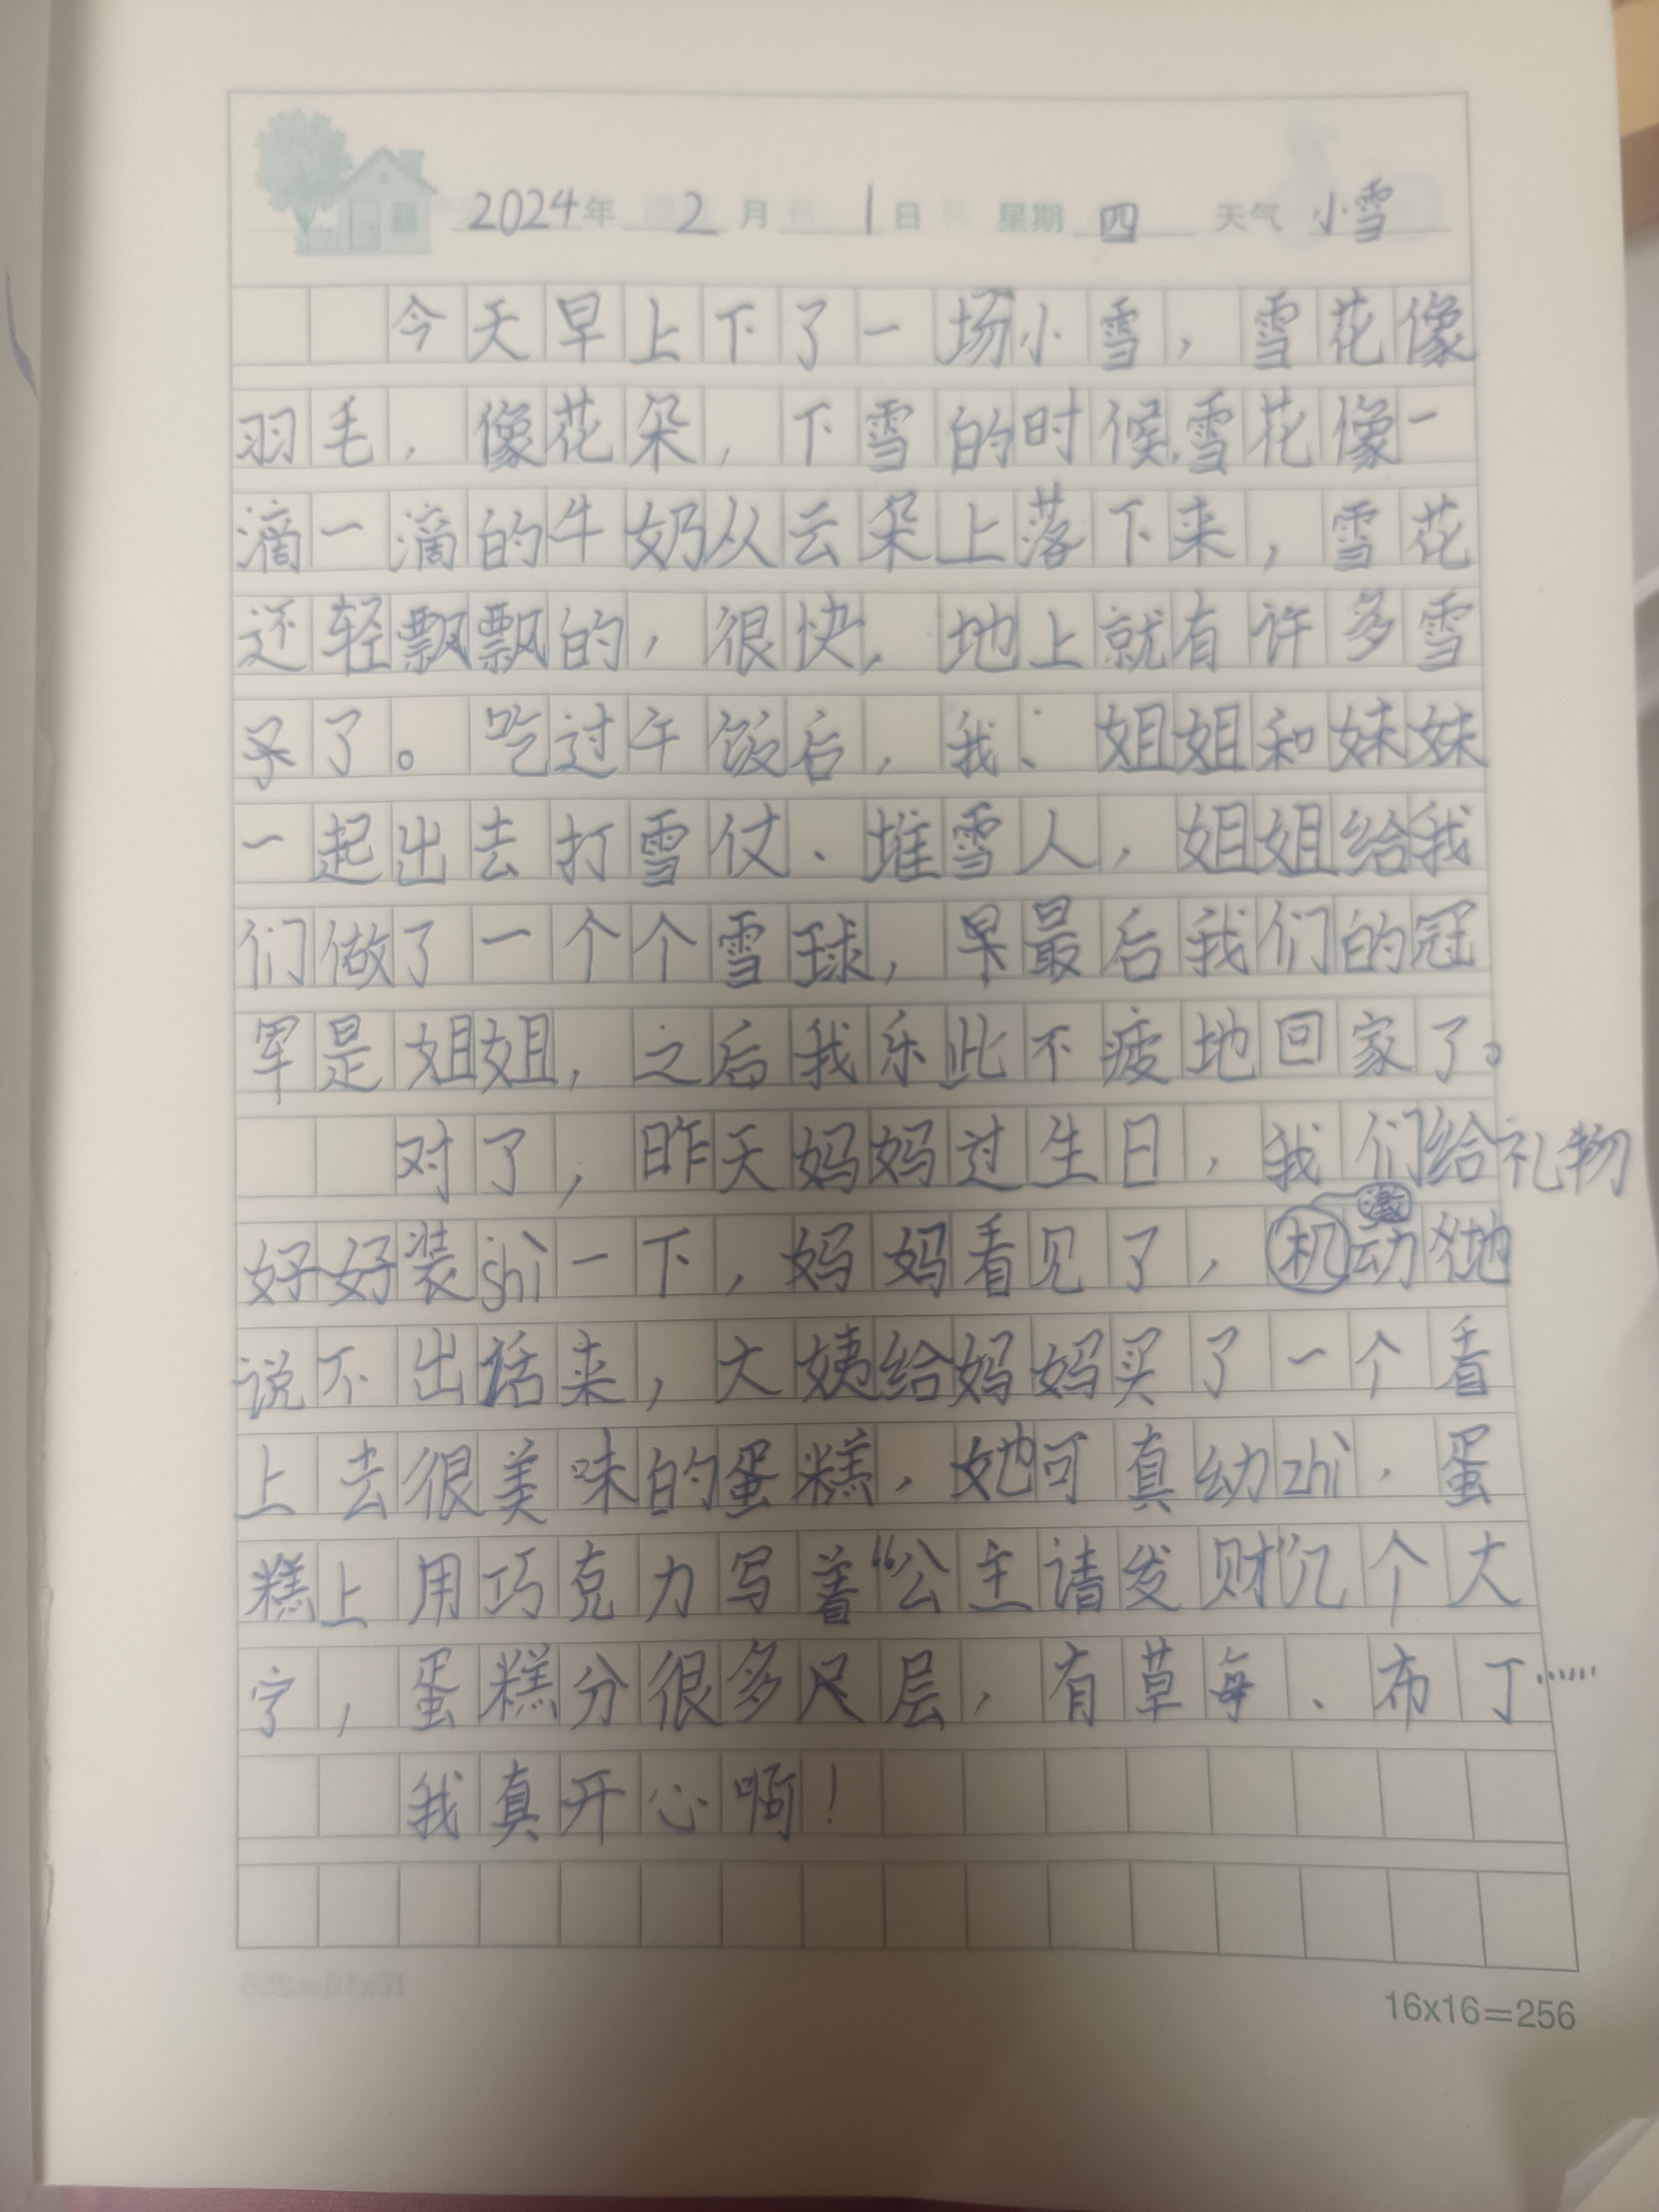 2024年 2月 1日 星期四 天气 小雪
今天早上下了一场小雪，雪花像
羽毛，像花朵，下雪的时候，雪花像一
滴一滴的牛奶从云朵上落下来，雪花
还轻飘飘的，很快，地上就有许多雪
了。吃过午饭后，我、姐姐和妹妹
一起出去打雪仗、堆雪人，姐姐给我
们做了一个个雪球，最后我们的冠
军是姐姐，之后我乐此不疲地回家了。
对了，昨天妈妈过生日，我们给礼物
好好装shì一下，妈妈看见了，动地
说不出话来，大姨给妈妈买了一个看
上去很美味的蛋糕，她可真幼zhì，蛋
糕上用巧克力写着“公主请发财”几个大
字，蛋糕分很多层，有草每、布丁……
我真开心啊！
16x16=256